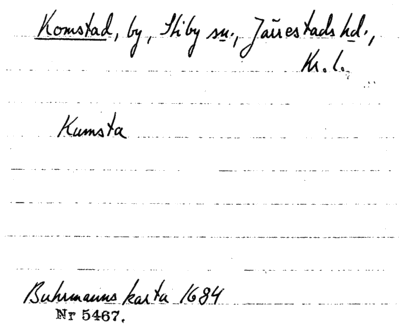 Komstad, by, Stiby sn., Järrestads hd.,
Kr. l.
Kumsta
Buhrmanns karta 1684
Nr 5467.